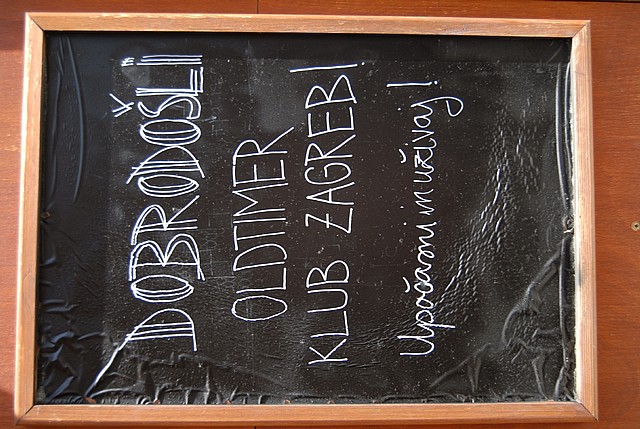 DOBRODOŠLI
OLDTIMER
KLUB ZAGREB!
Upočasni in uživaj!